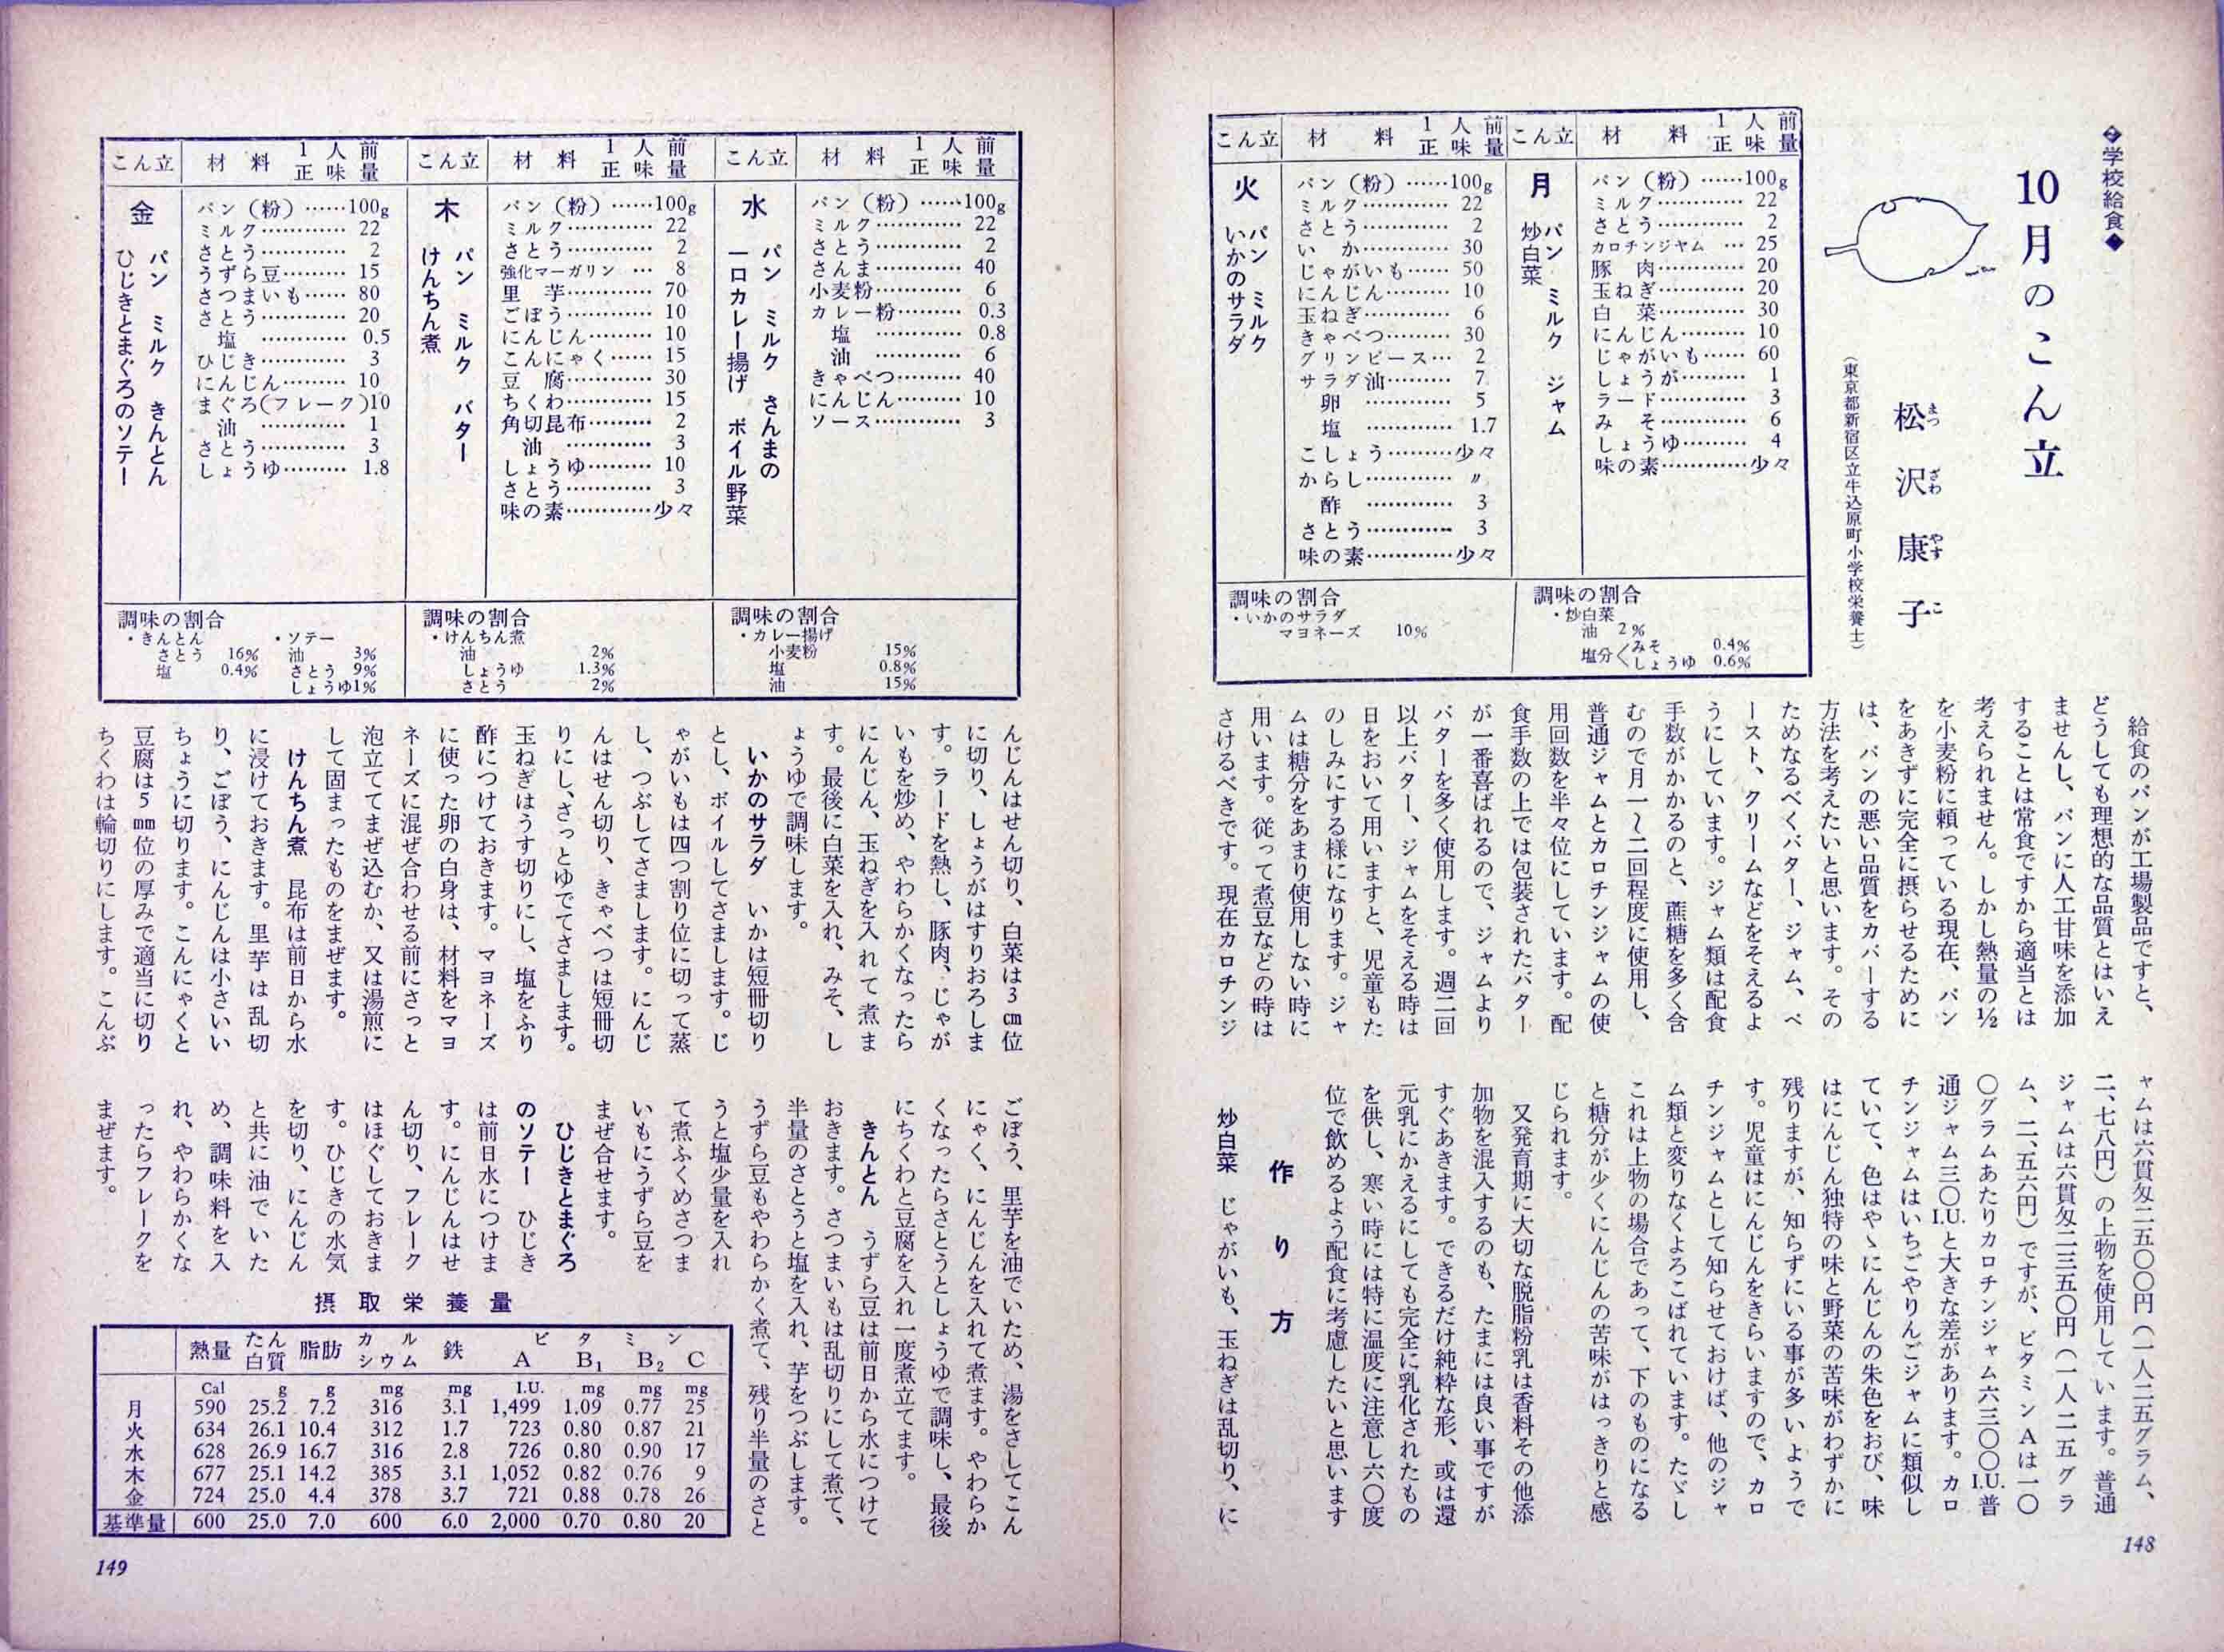 ◆学校給食◆
10月のこん立
松沢康子
まつざわやすこ
(東京都新宿区立牛込原町小学校栄養士)
こん立 材料 1人前正味量
月 パン ミルク ジャム
炒白菜
パン(粉)……100g
ミルク………… 22
さとう………… 2
カロチンジャム … 25
豚 肉………… 20
玉ねぎ………… 20
白 菜………… 30
にんじん……… 10
じゃがいも…… 60
しょうが……… 1
ラード………… 3
み そ………… 6
しょうゆ……… 4
味の素…………少々
調味の割合
・炒白菜
油 2%
塩分〈みそ 0.4%
しょうゆ 0.6%
こん立 材料 1人前正味量
火 パン ミルク
いかのサラダ
パン(粉)……100g
ミルク………… 22
さとう………… 2
い か………… 30
じゃがいも…… 50
にんじん……… 10
玉ねぎ………… 6
きゃべつ……… 30
グリンピース… 2
サラダ油……… 7
卵 ………… 5
塩 ………… 1.7
こしょう………少々
からし………… 〃
酢 ………… 3
さとう………… 3
味の素…………少々
調味の割合
・いかのサラダ
マヨネーズ 10%
給食のパンが工場製品ですと、
どうしても理想的な品質とはいえ
ませんし、パンに人工甘味を添加
することは常食ですから適当とは
考えられません。しかし熱量の½
を小麦粉に頼っている現在、パン
をあきずに完全に摂らせるために
は、パンの悪い品質をカバーする
方法を考えたいと思います。その
ためなるべくバター、ジャム、ペ
ースト、クリームなどをそえるよ
うにしています。ジャム類は配食
手数がかかるのと、蔗糖を多く含
むので月一〜二回程度に使用し、
普通ジャムとカロチンジャムの使
用回数を半々位にしています。配
食手数の上では包装されたバター
が一番喜ばれるので、ジャムより
バターを多く使用します。週二回
以上バター、ジャムをそえる時は
日をおいて用いますと、児童もた
のしみにする様になります。ジャ
ムは糖分をあまり使用しない時に
用います。従って煮豆などの時は
さけるべきです。現在カロチンジ
ャムは六貫匁二五〇〇円(一人二五グラム、
二、七八円)の上物を使用しています。普通
ジャムは六貫匁二三五〇円(一人二五グラ
ム、二、五六円)ですが、ビタミンAは一〇
〇グラムあたりカロチンジャム六三〇〇I.U.普
通ジャム三〇I.U.と大きな差があります。カロ
チンジャムはいちごやりんごジャムに類似し
ていて、色はやゝにんじんの朱色をおび、味
はにんじん独特の味と野菜の苦味がわずかに
残りますが、知らずにいる事が多いようで
す。児童はにんじんをきらいますので、カロ
チンジャムとして知らせておけば、他のジャ
ム類と変りなくよろこばれています。たゞし
これは上物の場合であって、下のものになる
と糖分が少くにんじんの苦味がはっきりと感
じられます。
又発育期に大切な脱脂粉乳は香料その他添
加物を混入するのも、たまには良い事ですが
すぐあきます。できるだけ純粋な形、或は還
元乳にかえるにしても完全に乳化されたもの
を供し、寒い時には特に温度に注意し六〇度
位で飲めるよう配食に考慮したいと思います
作り方
炒白菜 じゃがいも、玉ねぎは乱切り、に
148
こん立 材料 1人前正味量
水 パン ミルク さんまの
一口カレー揚げ ボイル野菜
パン(粉)……100g
ミルク………… 22
さとう………… 2
さんま………… 40
小麦粉………… 6
カレー粉……… 0.3
塩 ………… 0.8
油 ………… 6
きゃべつ……… 40
にんじん……… 10
ソース………… 3
調味の割合
・カレー揚げ
小麦粉 15%
塩 0.8%
油 15%
こん立 材料 1人前正味量
木 パン ミルク バター
けんちん煮
パン(粉)……100g
ミルク………… 22
さとう………… 2
強化マーガリン … 8
里 芋………… 70
ごぼう………… 10
にんじん……… 10
こんにゃく…… 15
豆 腐………… 30
ちくわ………… 15
角切昆布……… 2
油 ………… 3
しょうゆ……… 10
さとう………… 3
味の素…………少々
調味の割合
・けんちん煮
油 2%
しょうゆ 1.3%
さとう 2%
こん立 材料 1人前正味量
金 パン ミルク きんとん
ひじきとまぐろのソテー
パン(粉)……100g
ミルク………… 22
さとう………… 2
うずら豆……… 15
さつまいも…… 80
さとう………… 20
塩 ………… 0.5
ひじき………… 3
にんじん……… 10
まぐろ(フレーク)10
油 ………… 1
さとう………… 3
しょうゆ……… 1.8
調味の割合
・きんとん
さとう 16%
塩 0.4%
・ソテー
油 3%
さとう 9%
しょうゆ1%
んじんはせん切り、白菜は3㎝位
に切り、しょうがはすりおろしま
す。ラードを熱し、豚肉、じゃが
いもを炒め、やわらかくなったら
にんじん、玉ねぎを入れて煮ま
す。最後に白菜を入れ、みそ、し
ょうゆで調味します。
いかのサラダ いかは短冊切り
とし、ボイルしてさまします。じ
ゃがいもは四つ割り位に切って蒸
し、つぶしてさまします。にんじ
んはせん切り、きゃべつは短冊切
りにし、さっとゆでてさまします。
玉ねぎはうす切りにし、塩をふり
酢につけておきます。マヨネーズ
に使った卵の白身は、材料をマヨ
ネーズに混ぜ合わせる前にさっと
泡立ててまぜ込むか、又は湯煎に
して固まったものをまぜます。
けんちん煮 昆布は前日から水
に浸けておきます。里芋は乱切
り、ごぼう、にんじんは小さいい
ちょうに切ります。こんにゃくと
豆腐は5㎜位の厚みで適当に切り
ちくわは輪切りにします。こんぶ
ごぼう、里芋を油でいため、湯をさしてこん
にゃく、にんじんを入れて煮ます。やわらか
くなったらさとうとしょうゆで調味し、最後
にちくわと豆腐を入れ一度煮立てます。
きんとん うずら豆は前日から水につけて
おきます。さつまいもは乱切りにして煮て、
半量のさとうと塩を入れ、芋をつぶします。
うずら豆もやわらかく煮て、残り半量のさと
うと塩少量を入れ
て煮ふくめさつま
いもにうずら豆を
まぜ合せます。
ひじきとまぐろ
のソテー ひじき
は前日水につけま
す。にんじんはせ
ん切り、フレーク
はほぐしておきま
す。ひじきの水気
を切り、にんじん
と共に油でいた
め、調味料を入
れ、やわらかくな
ったらフレークを
まぜます。
摂取栄養量
熱量 たん白質 脂肪 カルシウム 鉄 ビタミン A B₁ B₂ C
Cal g g mg mg I.U. mg mg mg
月 590 25.2 7.2 316 3.1 1,499 1.09 0.77 25
火 634 26.1 10.4 312 1.7 723 0.80 0.87 21
水 628 26.9 16.7 316 2.8 726 0.80 0.90 17
木 677 25.1 14.2 385 3.1 1,052 0.82 0.76 9
金 724 25.0 4.4 378 3.7 721 0.88 0.78 26
基準量 600 25.0 7.0 600 6.0 2,000 0.70 0.80 20
149